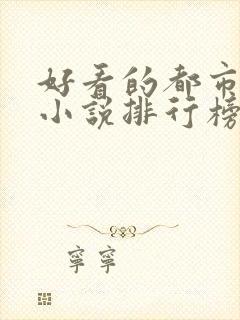 好看的都市
小说排行榜
寧寧